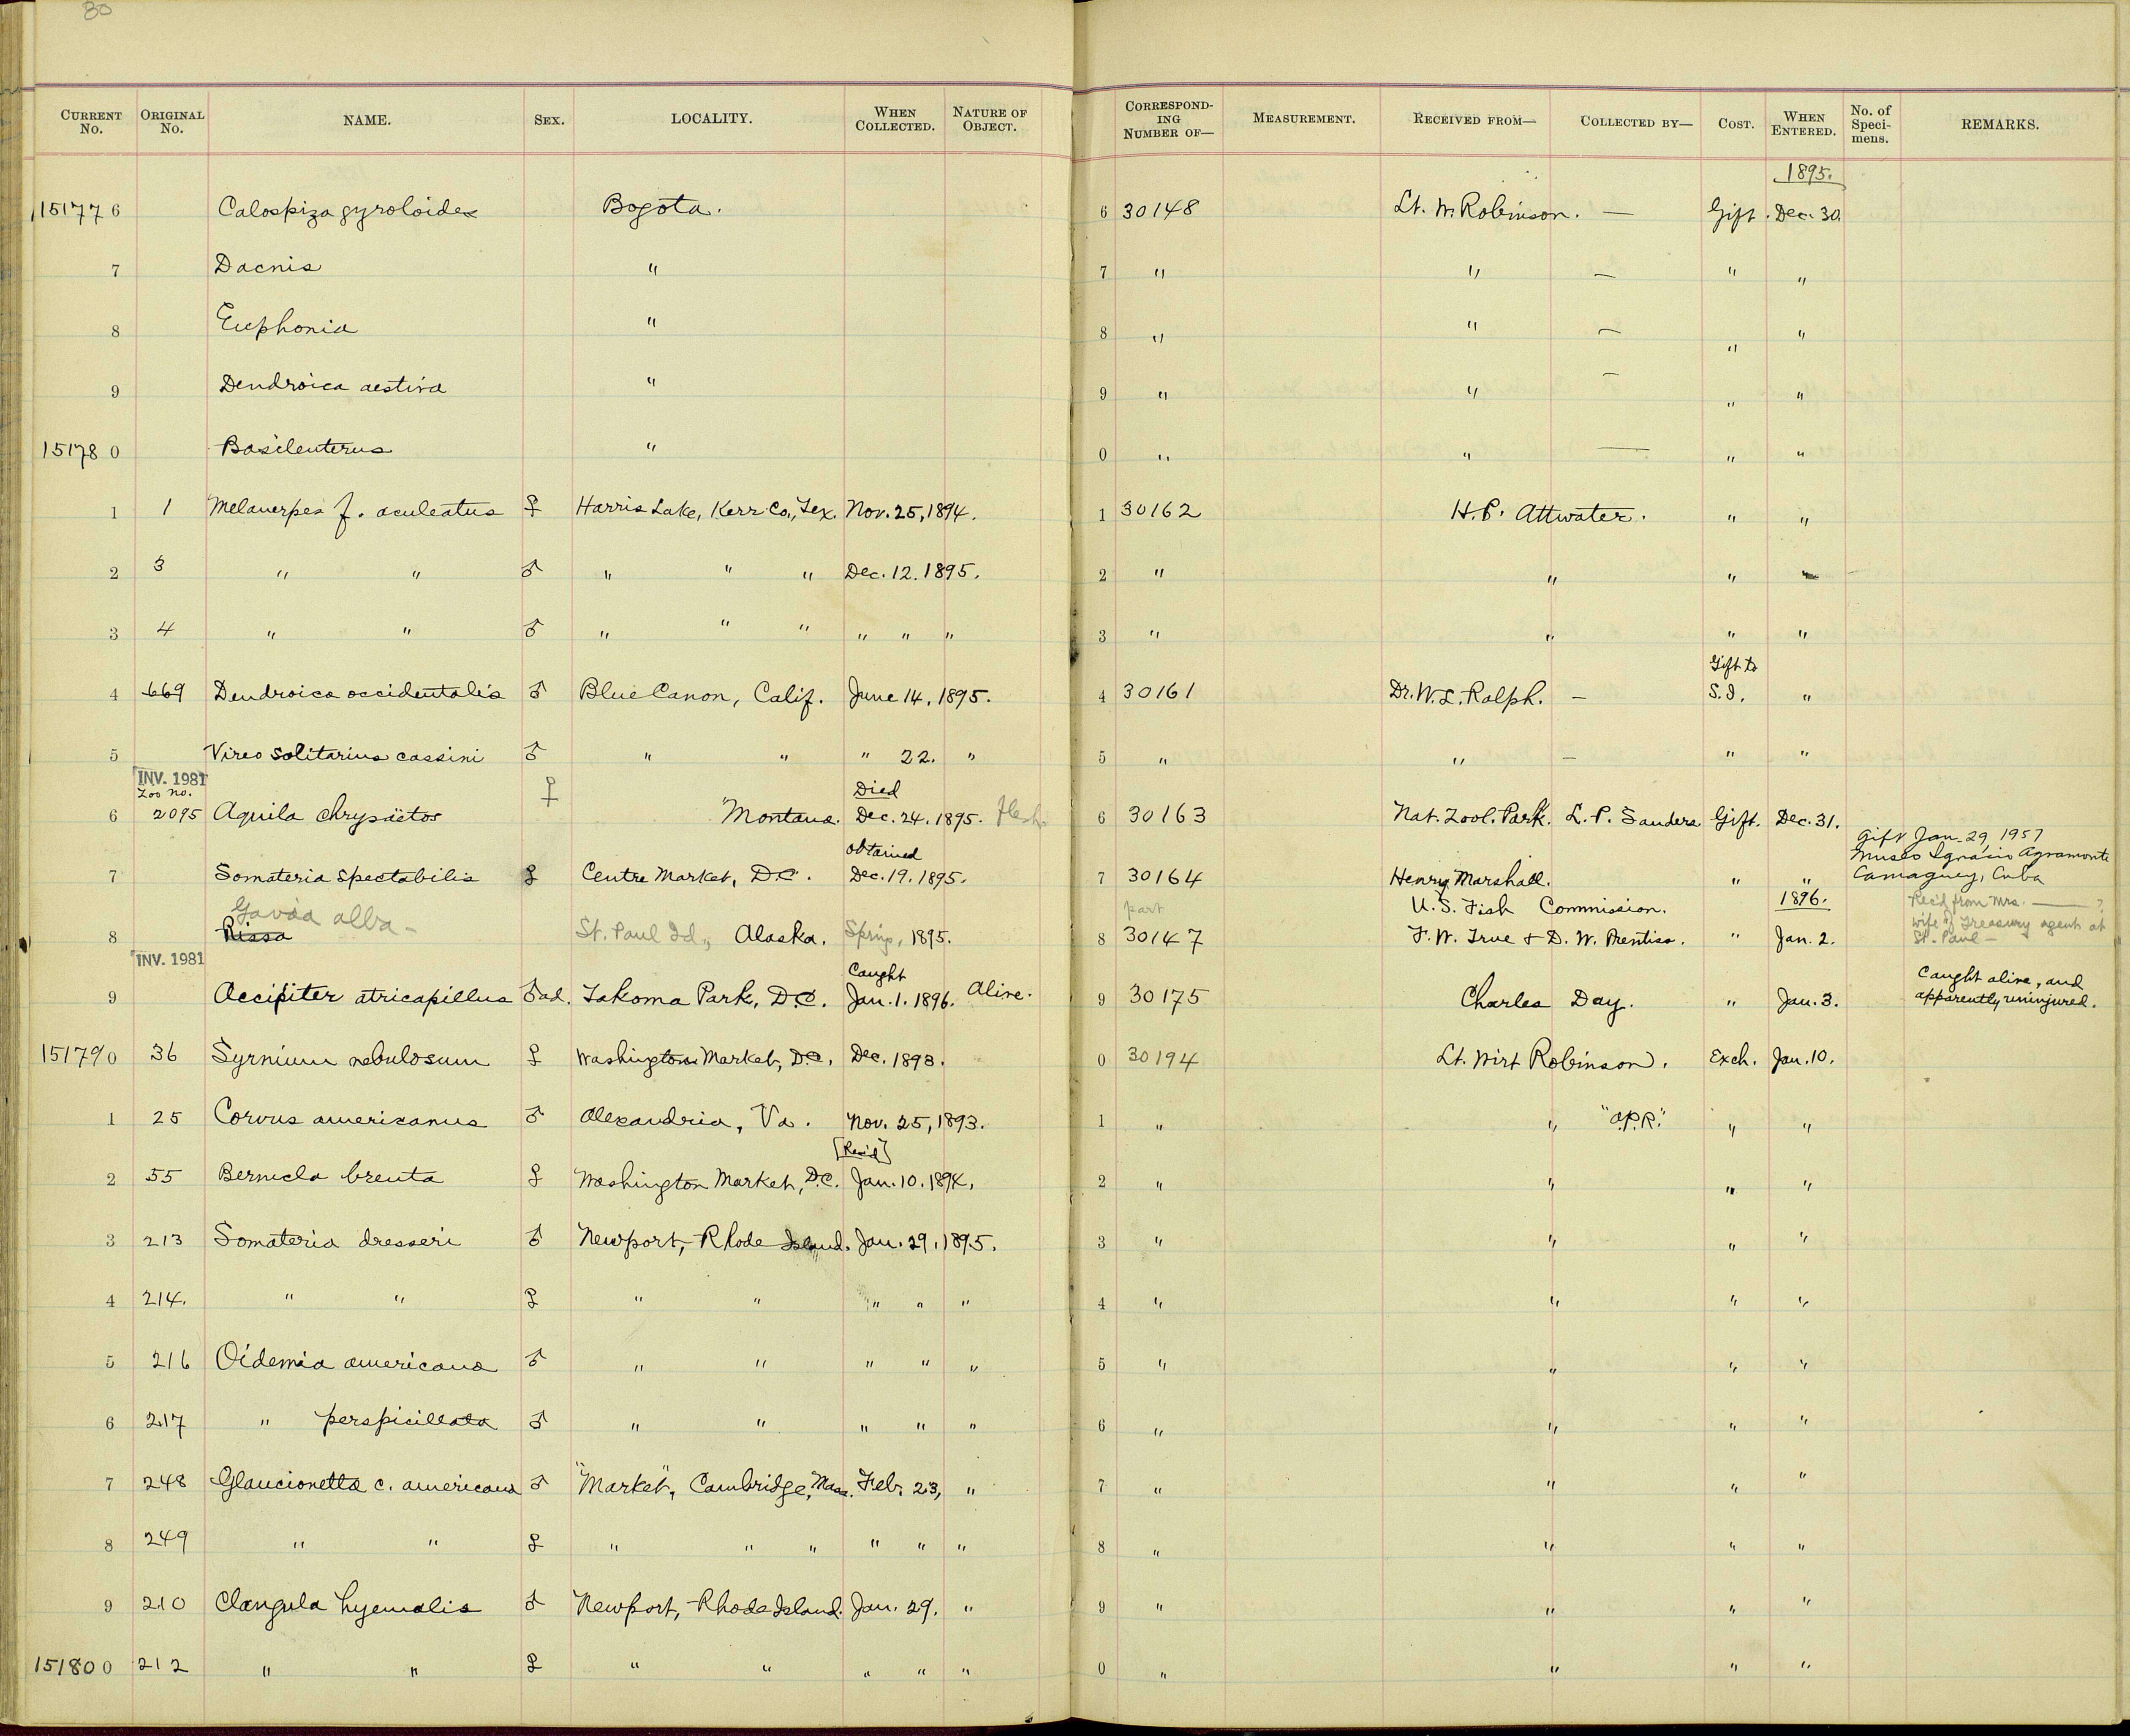 80
CURRENT No. ORIGINAL No. NAME. SEX. LOCALITY. WHEN COLLECTED. NATURE OF OBJECT. CORRESPONDING NUMBER OF— MEASUREMENT. RECEIVED FROM— COLLECTED BY— COST. WHEN ENTERED. No. of Specimens. REMARKS.
1895.
151776 Calospiza gyroloides Bogota. 6 30148 Lt. W. Robinson. — Gift. Dec. 30.
7 Dacnis " 7 " " — " "
8 Euphonia " 8 " " — " "
9 Dendroica aestiva " 9 " " — " "
151780 Basileuterus " 0 " " — " "
1 1 Melanerpes f. aculeatus ♀ Harris Lake, Kerr Co., Tex. Nov. 25, 1894. 1 30162 H. P. Attwater. " "
2 3 " " ♂ " " " Dec. 12. 1895. 2 " " " "
3 4 " " ♂ " " " " " " 3 " " " "
Gift to
4 669 Dendroica occidentalis ♂ Blue Canon, Calif. June 14, 1895. 4 30161 Dr. W. L. Ralph. — S. I. "
5 Vireo solitarius cassini ♂ " " " 22. " 5 " " — " "
INV. 1981
Zoo no. ♀ Died
6 2095 Aquila chrysaëtos Montana. Dec. 24. 1895. flesh. 6 30163 Nat. Zool. Park. L. P. Sanders Gift. Dec. 31.
obtained Gift Jan. 29, 1957
Museo Ignacio Agramonte
7 Somateria spectabilis ♀ Centre Market, D.C. Dec. 19. 1895. 7 30164 Henry Marshall. " " Camaguey, Cuba
Gavia alba - part U. S. Fish Commission. 1896. Rec'd from Mrs. —— ?
wife of Treasury agent at
8 Rissa St. Paul Id., Alaska. Spring, 1895. 8 30147 F. W. True & D. W. Prentiss. " Jan. 2. St. Paul —
INV. 1981
Caught Caught alive, and
9 Accipiter atricapillus ♂ ad. Takoma Park, D.C. Jan. 1. 1896. Alive. 9 30175 Charles Day. " Jan. 3. apparently uninjured.
151790 36 Syrnium nebulosum ♀ Washington Market, D.C. Dec. 1893. 0 30194 Lt. Wirt Robinson. Exch. Jan. 10.
1 25 Corvus americanus ♂ Alexandria, Va. Nov. 25, 1893. 1 " " "A.P.R." " "
[Rec'd]
2 55 Bernicla brenta ♀ Washington Market, D.C. Jan. 10. 1894. 2 " " " "
3 213 Somateria dresseri ♂ Newport, Rhode Island. Jan. 29. 1895. 3 " " " "
4 214. " " ♀ " " " " " 4 " " " "
5 216 Oidemia americana ♂ " " " " " 5 " " " "
6 217 " perspicillata ♂ " " " " " 6 " " " "
7 248 Glaucionetta c. americana ♂ "Market", Cambridge, Mass. Feb. 23, " 7 " " " "
8 249 " " ♀ " " " " " " 8 " " " "
9 210 Clangula hyemalis ♂ Newport, Rhode Island. Jan. 29. " 9 " " " "
151800 212 " " ♀ " " " " " 0 " " " "